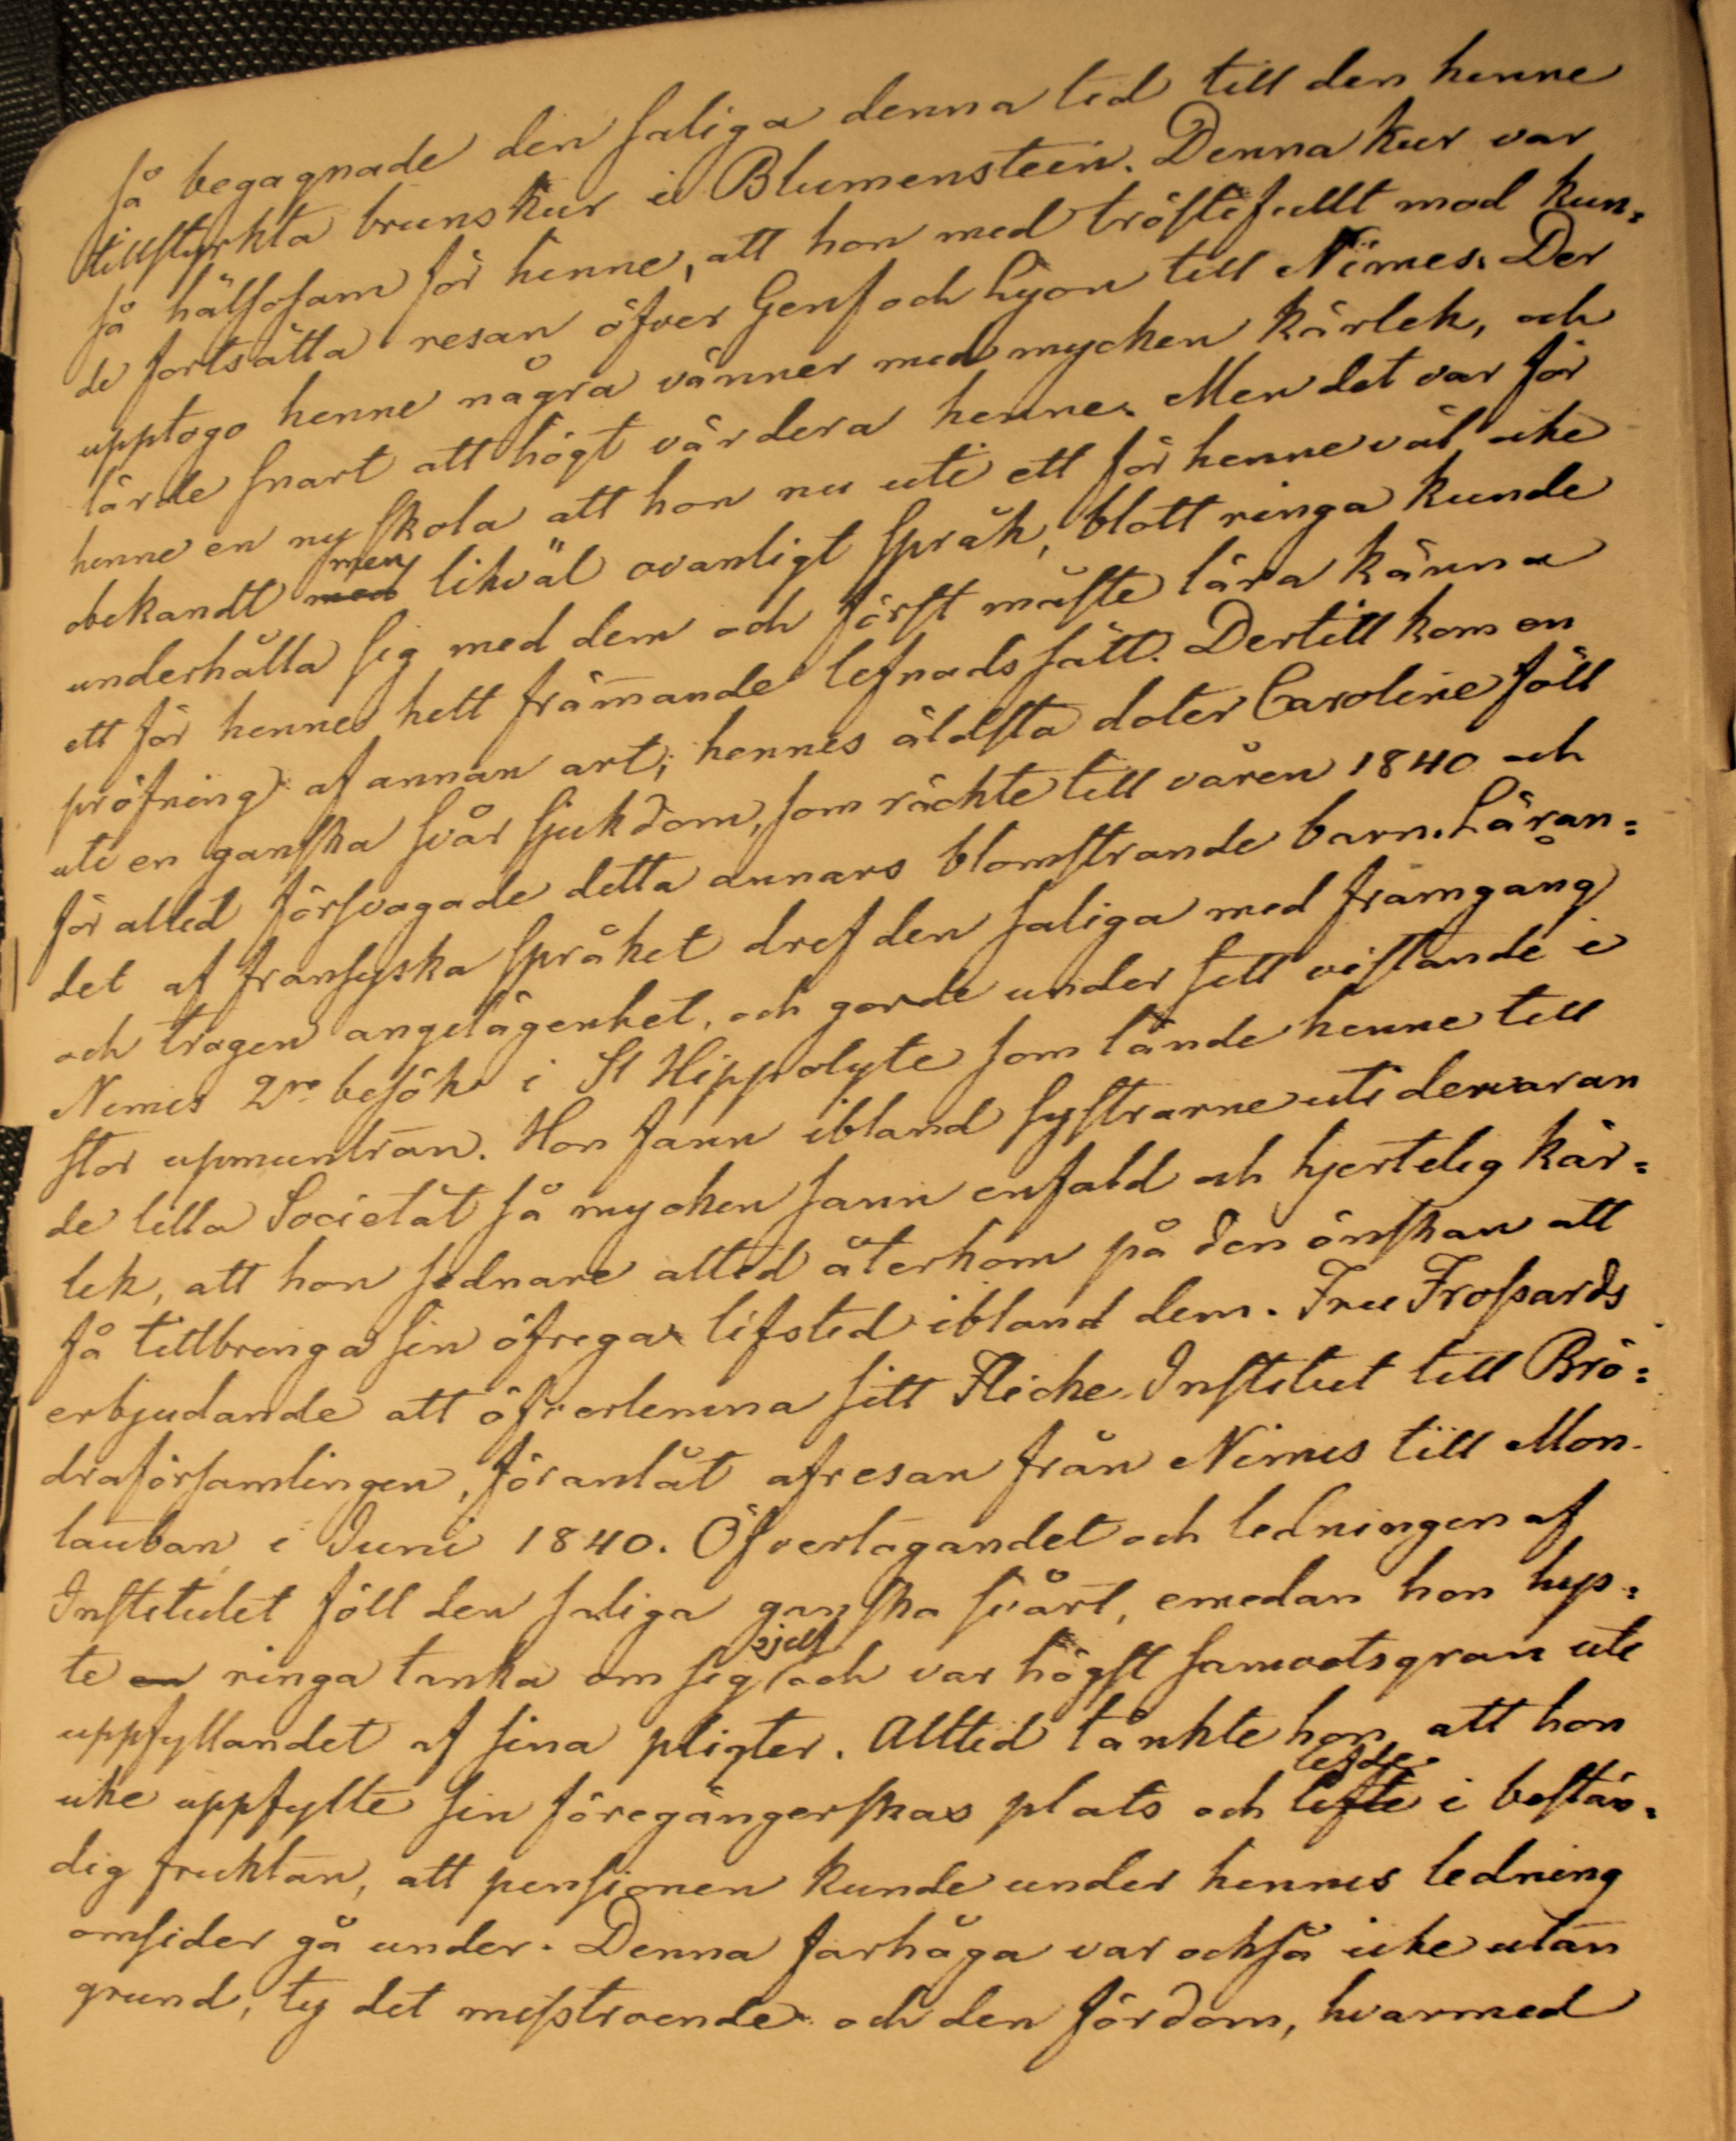 så begagnade den saliga denna tid till den henne
tillstyrkta brunskur i Blumenstein. Denna kur var
så hälsosam för henne, att hon med tröstefullt mod kun=
de fortsätta resan öfver Genf och Lyon till Nimes. Der
upptogo henne några vänner med mycken kärlek, och
lärde snart att högt värdera henne. Men det var för
henne en ny skola att hon nu uti ett för henne väl icke
obekandt men likväl ovanligt språk, blott ringa kunde
underhålla sig med dem och först måste lära känna
ett för henne helt främande lefnadssätt. Dertill kom en
pröfning af annan art; hennes äldsta doter Caroline föll
uti en ganska svår sjukdom, som räckte till våren 1840 och
för alltid försvagade detta annars blomstrande barn. Läran=
det af fransyska språket dref den saliga med framgång
och trägen angelägenhet, och gorde under sitt vistande i
Nimes 2ne besök i St Hippolyte som lände henne till
stor upmuntran. Hon fann ibland systrarne uti denvaran
de lilla Societät så mycken sann enfald och hjertelig kär=
lek, att hon sednare alltid återkom på den önskan att
få tillbringa sin öfriga lifstid ibland dem. Fru Frossards
erbjudande att öfverlemna sitt Flicke Institut till Brö=
draförsamlingen, föranlät afresan från Nimes till Mon-
tauban i Juni 1840. Öfvertagandet och ledningen af
Institutet föll den saliga ganska svårt, emedan hon hys=
te en ringa tanka om sig sjelf och var högst samvetsgran uti
uppfyllandet af sina pligter. Alltid tänkte hon att hon
icke uppfyllte sin föregångerskas plats och lefde i bestän=
dig fruktan, att pensionen kunde under hennes ledning
omsider gå under. Denna farhåga var också icke utan
grund, ty det misstroende och den fördom, hvarmed